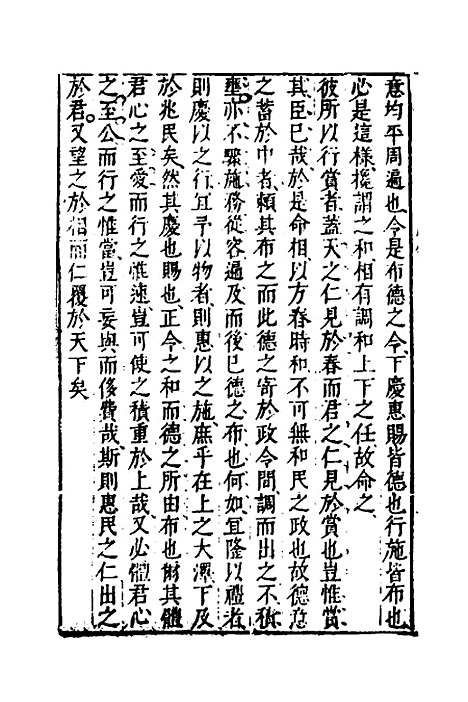 意均平周遍也令是布德之令下慶惠賜皆德也行施皆布也
必是這樣纔謂之和相有調和上下之任故命之
彼所以行賞者蓋天之仁見於春而君之仁見於賞也豈惟賞
其臣已哉於是命相以方春時和不可無和民之政也故德意
之蓄於中者頼其布之而此德之寄於政令間調而出之不積
壅亦不驟施務從容遍及而後已德之布也何如宜隆以禮者
則慶以之行宜予以物者則惠以之施庶乎在上之大澤下及
於兆民矣然其慶也賜也正令之和而德之所由布也爾其體
君心之至愛而行之惟速豈可使之積重於上哉又必體君心
之至公而行之惟當豈可妄與而侈費哉斯則惠民之仁出之
於君又望之於相而仁覆於天下矣